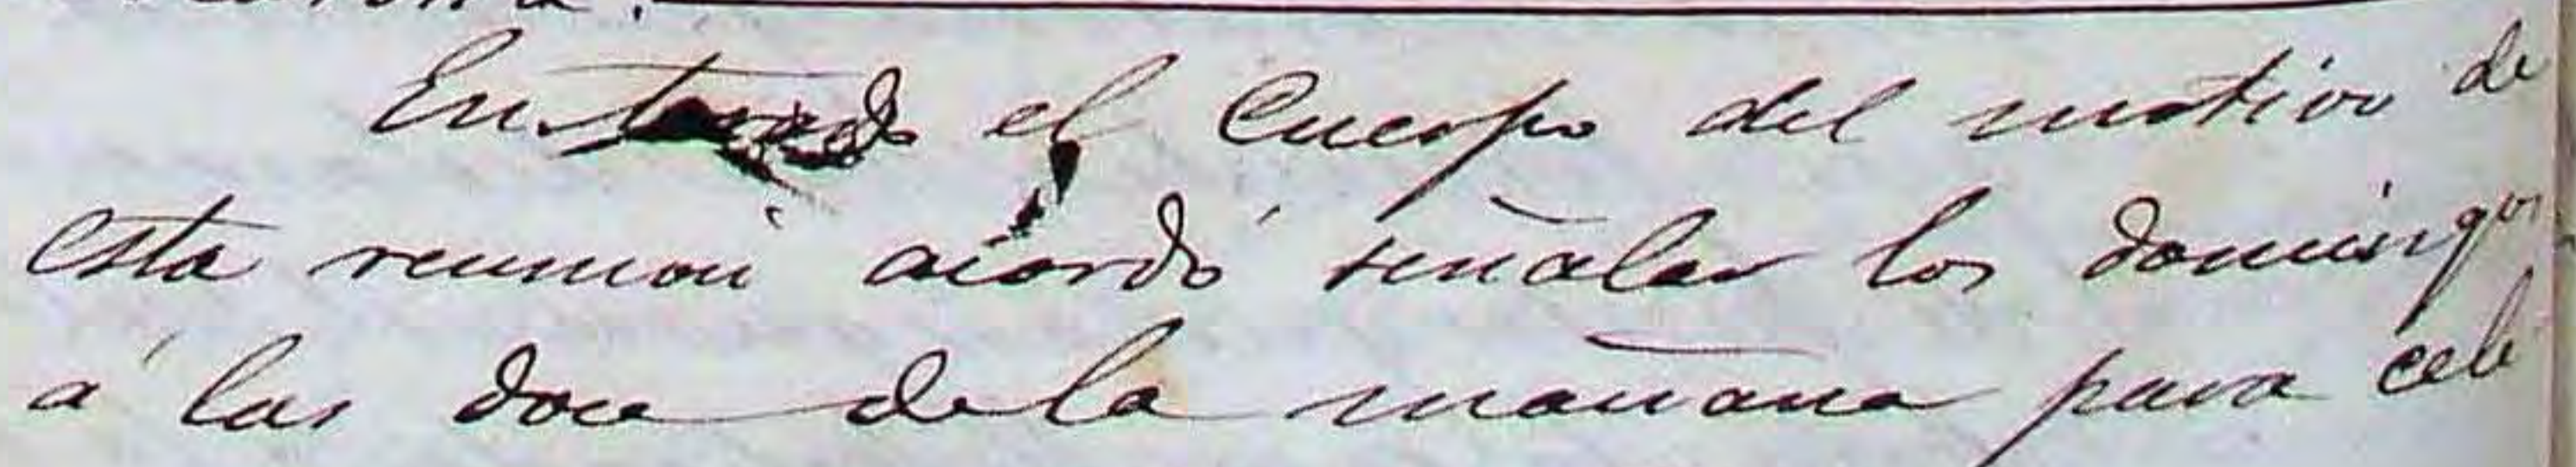 Enterado el Cuerpo del motivo de
esta reunion acordó señalar los domingos
á las doce de la mañana para cele